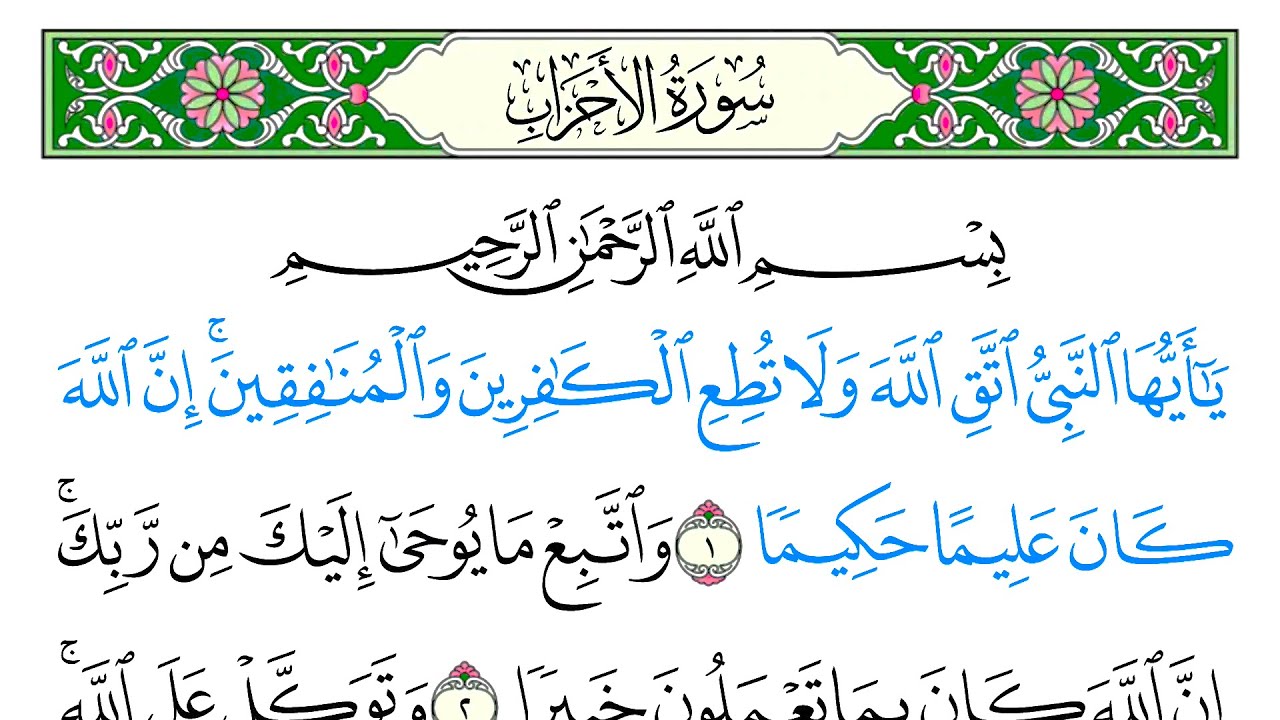 سُورَةُ الأَحْزَابِ
بِسْمِ ٱللَّهِ ٱلرَّحْمَٰنِ ٱلرَّحِيمِ
يَٰٓأَيُّهَا ٱلنَّبِىُّ ٱتَّقِ ٱللَّهَ وَلَا تُطِعِ ٱلْكَٰفِرِينَ وَٱلْمُنَٰفِقِينَ ۚ إِنَّ ٱللَّهَ
كَانَ عَلِيمًا حَكِيمًا ١ وَٱتَّبِعْ مَا يُوحَىٰٓ إِلَيْكَ مِن رَّبِّكَ ۚ
إِنَّ ٱللَّهَ كَانَ بِمَا تَعْمَلُونَ خَبِيرًا ٢ وَتَوَكَّلْ عَلَى ٱللَّهِ ۚ